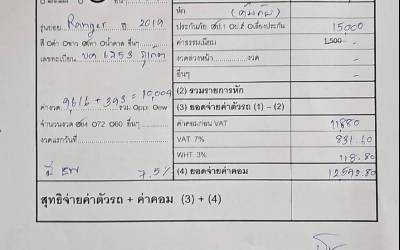 หัก (ต้นคัน)
รุ่นย่อย Ranger ปี 2019 ประกันภัย 15,000
สี ดำ ขาว เทา น้ำตาล อื่นๆ ค่าธรรมเนียม 1,500 -
เลขทะเบียน บค 6753 ภูเก็ต งวดลวงหน้า งวด -
อื่นๆ -
(2) รวมรายการหัก
ค่างวด 9,616 + 393 = 10,009 รวม Opp Oew (3) ยอดจ่ายค่าตัวรถ (1) – (2)
จำนวนงวด O72 O60 อื่นๆ ค่าคอมก่อน VAT 11,880
งวดแรกวันที่ VAT 7% 831.60
WHT 3% 118.80
7.5% (4) ยอดจ่ายค่าคอม 12,592.80
สุทธิจ่ายค่าตัวรถ + ค่าคอม (3) + (4)